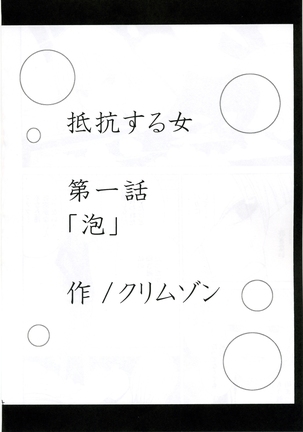 抵抗する女
第一話
「泡」
作 / クリムゾン